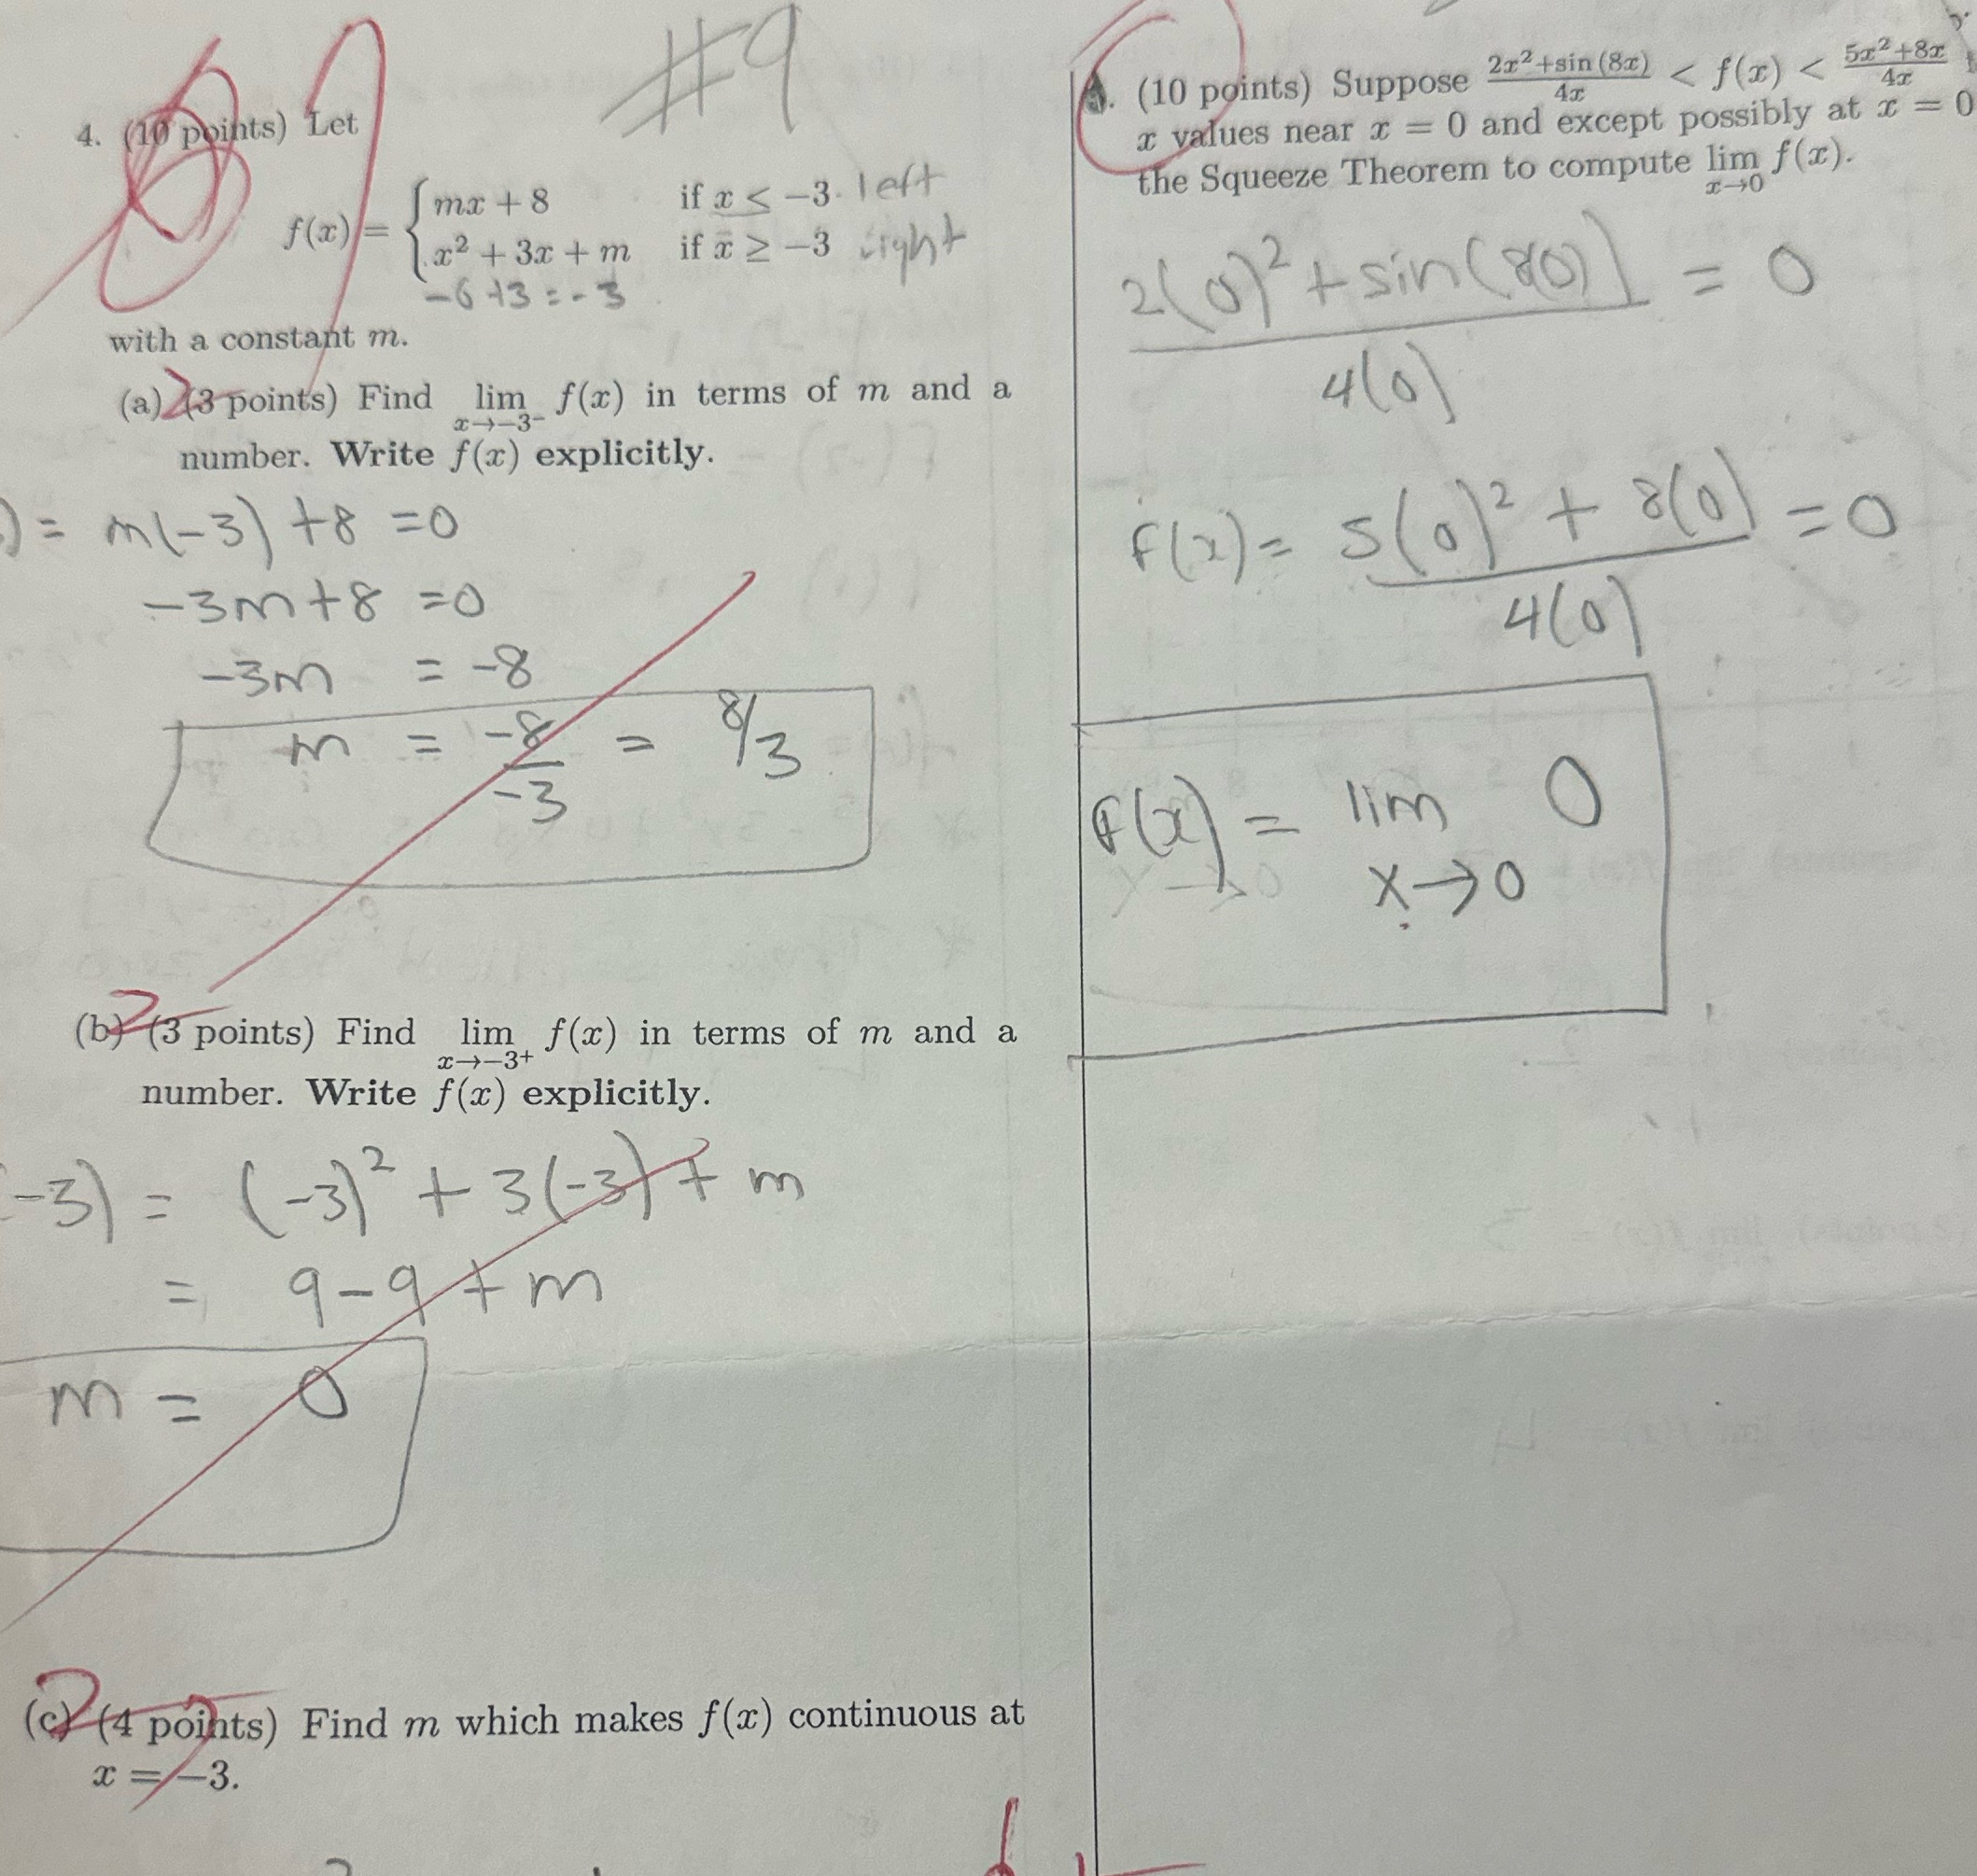 #9
4. (10 points) Let
f(x) = { mx + 8 if x < −3 left
x² + 3x + m if x ≥ −3 right
-6 +3 = -3
with a constant m.
(a) 2 (3 points) Find lim x→−3⁻ f(x) in terms of m and a
number. Write f(x) explicitly.
) = m(-3) +8 =0
-3m+8 =0
-3m = -8
m = -8/-3 = 8/3
(b) 2 (3 points) Find lim x→−3+ f(x) in terms of m and a
number. Write f(x) explicitly.
-3) = (-3)² + 3(-3) + m
= 9-9+m
m = 0
(c) 2 (4 points) Find m which makes f(x) continuous at
x = −3.
. (10 points) Suppose (2x²+sin (8x))/4x < f(x) < (5x²+8x)/4x
x values near x = 0 and except possibly at x = 0
the Squeeze Theorem to compute lim x→0 f(x).
(2(0)²+sin(8(0)))/4(0) = 0
f(x) = (5(0)² + 8(0))/4(0) = 0
f(x) = lim x→0 0